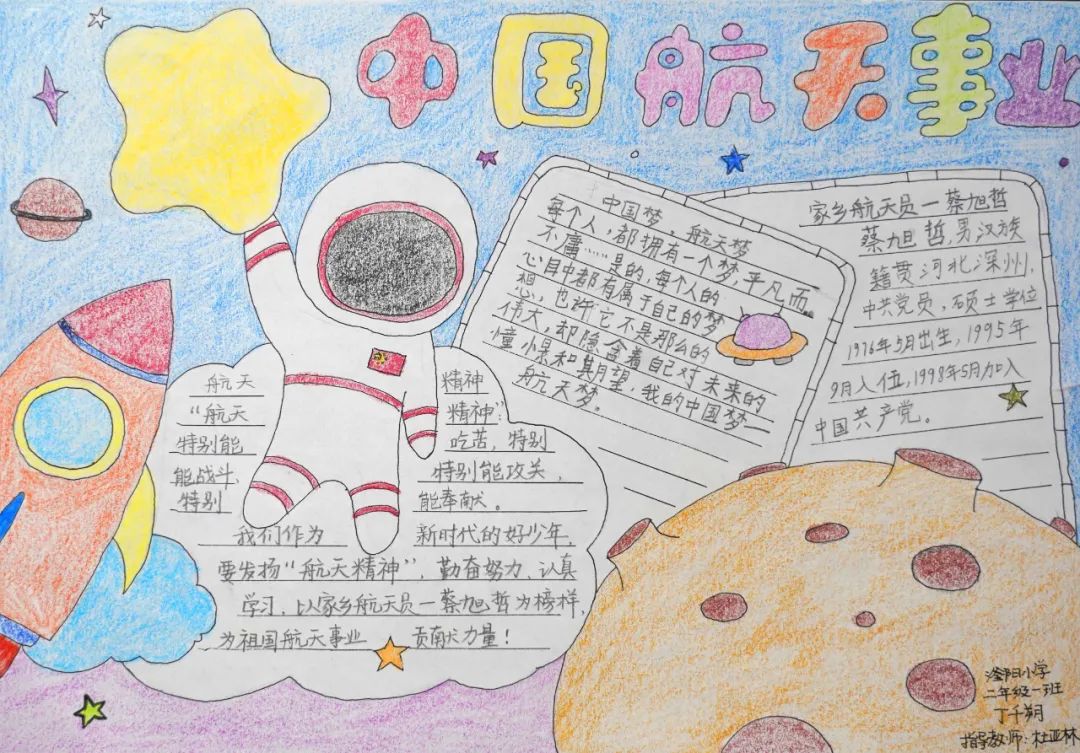 中国航天事业
中国梦、航天梦
每个人,都拥有一个梦,平凡而
不庸……是的,每个人的
心目中都有属于自己的梦
想,也许它不是那么的
伟大,却隐含着自己对未来的
憧憬和期望,我的中国梦一
航天梦。
家乡航天员一蔡旭哲
蔡旭哲,男,汉族
籍贯河北深州,
中共党员,硕士学位
1976年5月出生,1995年
9月入伍,1998年5月加入
中国共产党。
航天 精神
“航天 精神”:
特别能 吃苦,特别
能战斗, 特别能攻关,
特别 能奉献。
我们作为 新时代的好少年,
要发扬“航天精神”,勤奋努力,认真
学习,以家乡航天员一蔡旭哲为榜样,
为祖国航天事业 贡献力量!
滏阳小学
二年级一班
丁千朔
指导教师:杜亚林